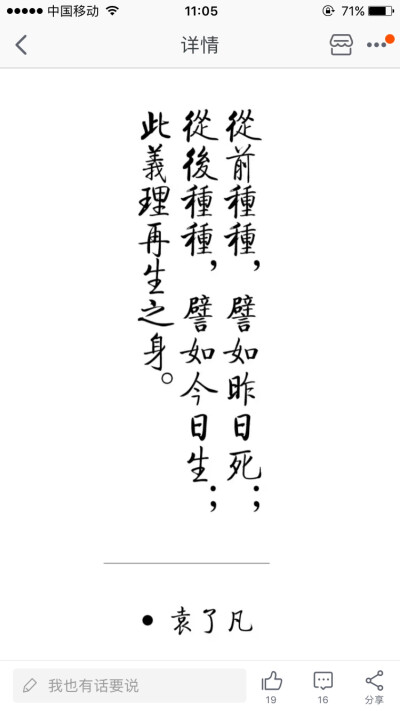 中国移动 11:05 71%
详情
從前種種，譬如昨日死；
從後種種，譬如今日生；
此義理再生之身。
袁了凡
我也有话要说 19 16 分享